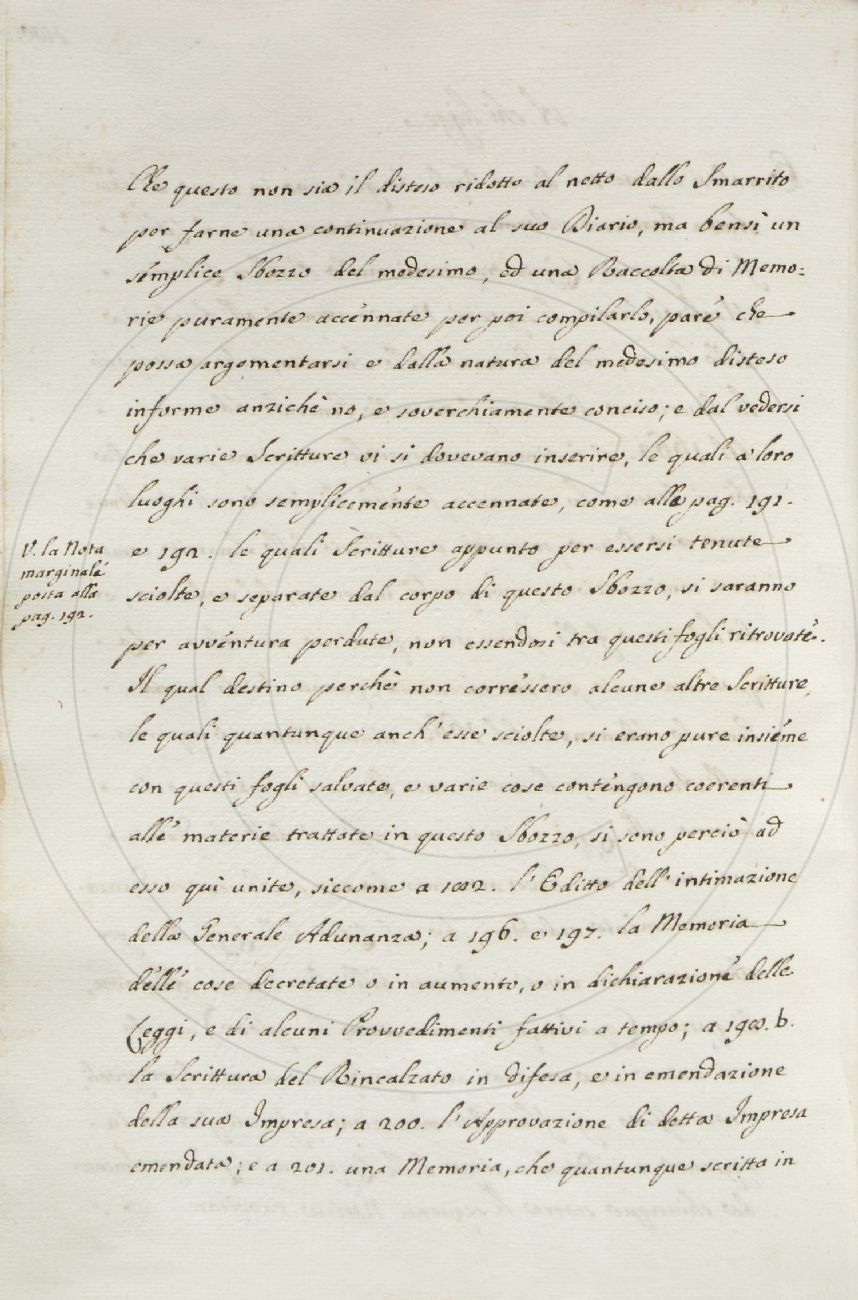 Che questo non sia il disteso ridotto al netto dallo Smarrito
per farne una continuazione al suo Diario, ma bensì un
sémplice Sbozzo del medesimo, ed una Raccolta di Memo=
rie puramente accénnate per poi compilarlo, paré che
possa argomentarsi e dalla natura del medesimo disteso
informe anzichè no, e soverchiamente conciso; e dal vedersi
che varie Scritture vi si dovevano inserire, le quali a loro
luoghi sono semplicemente accennate, come alla pag. 191.
V. la Nota
marginale
posta alla
pag. 192.
e 192. le quali Scritture appunto per essersi tenute
sciolte, e separate dal corpo di questo Sbozzo, si saranno
per avvéntura perdute, non essendosi tra questi fogli ritrovate.
Il qual destino perchè non corréssero alcune altre Scritture,
le quali quantunque anch' esse sciolte, si erano pure insiéme
con questi fogli salvate, e varie cose conténgono coerenti
allé materie trattate in questo Sbozzo, si sono perciò ad
esso quì unite, siccome a l' Editto dell' intimazione
della Generale Adunanza; a 196. e 197. la Memoria
déllé cose decretate o in aumento, o in dichiarazioné delle
Leggi, e di alcuni Provvedimenti fattivi a tempo; a b.
la Scrittura del Rincalzato in difesa, e in emendazione
della sua Impresa; a 200. l' Approvazione di detta Impresa
emendata; e a 201. una Memoria, che quantunque scritta in